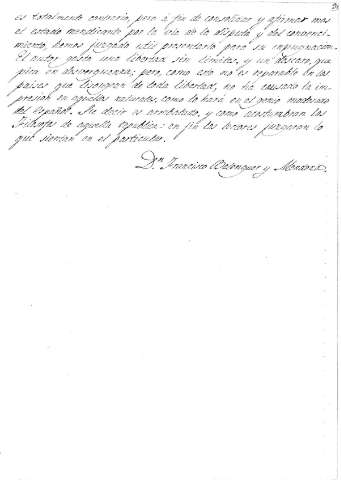 es totalmente contrario, pero a fin de consolidar y afirmar mas
el estado mendicante por la via de la disputa, y del convenci-
miento, hemos juzgado util presentarlo para su impugnacion.
El autor gasta una libertad sin limites, y un descaro, que
pica en desverguenza; pero, como esto no es reparable en los
paises que de toda libertad, no ha causado la im-
presion en aquellos naturales, como lo hará en el genio maduro
del Español. Su decir es arrebatado, y como acostumbran los
Filosofos de aquella republica: en fin los lectores juzgaran lo
que sientan en el particular.
Dn. Francisco y Mendoza.